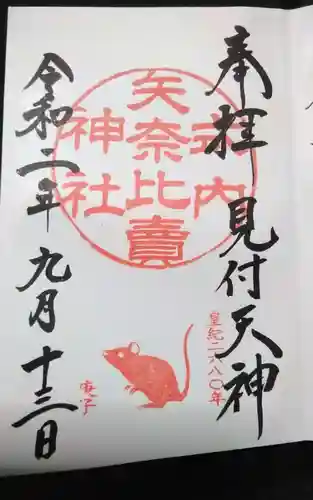 奉拝 見付天神
式内
矢奈比賣
神社
皇紀二六八〇年
庚子
令和二年 九月 十三日